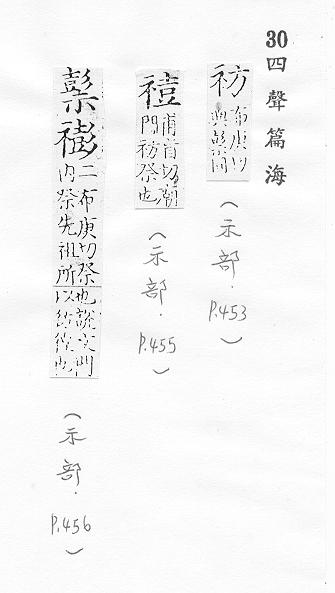 30四聲篇海
祊 布庚切
與𥛱同
（示部．P.453）
甫盲切廟
門祊祭也
（示部．P.455）
𥛱 二布庚切祭也說文門
內祭先祖所以徬徨也
（示部．P.456）